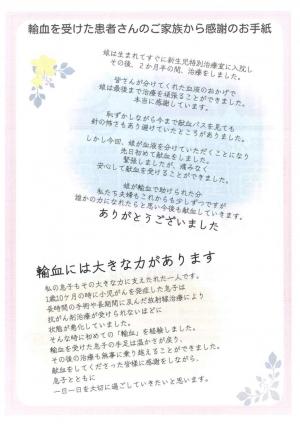 輸血を受けた患者さんのご家族から感謝のお手紙
娘は生まれてすぐに新生児特別治療室に入院し
その後、2か月半の間、治療をしました。
皆さんが分けてくれた血液のおかげで
娘は最後まで治療を頑張ることができました。
本当に感謝しています。
恥ずかしながら今まで献血バスを見ても
針の怖さもあり避けていたところがありました。
しかし今回、娘が血液を分けていただくことになり
先日初めて献血をしました。
緊張しましたが、痛みなく
安心して献血を受けることができました。
娘が輸血で助けられた分
私たち夫婦もこれからも少しずつですが
誰かの力になれたらと思い今後も献血していきます。
ありがとうございました
輸血には大きな力があります
私の息子もその大きな力に支えたれた一人です。
1歳10ケ月の時に小児がんを発症した息子は
長時間の手術や長期間に及んだ放射線治療により
抗がん剤治療が受けられないほどに
状態が悪化していました。
そんな時に初めての「輸血」を経験しました。
輸血を受けた息子の手足は温かさが戻り、
その後の治療も無事に乗り越えることができました。
献血をしてくださった皆様に感謝をしながら、
息子とともに
一日一日を大切に過ごしていきたいと思います。